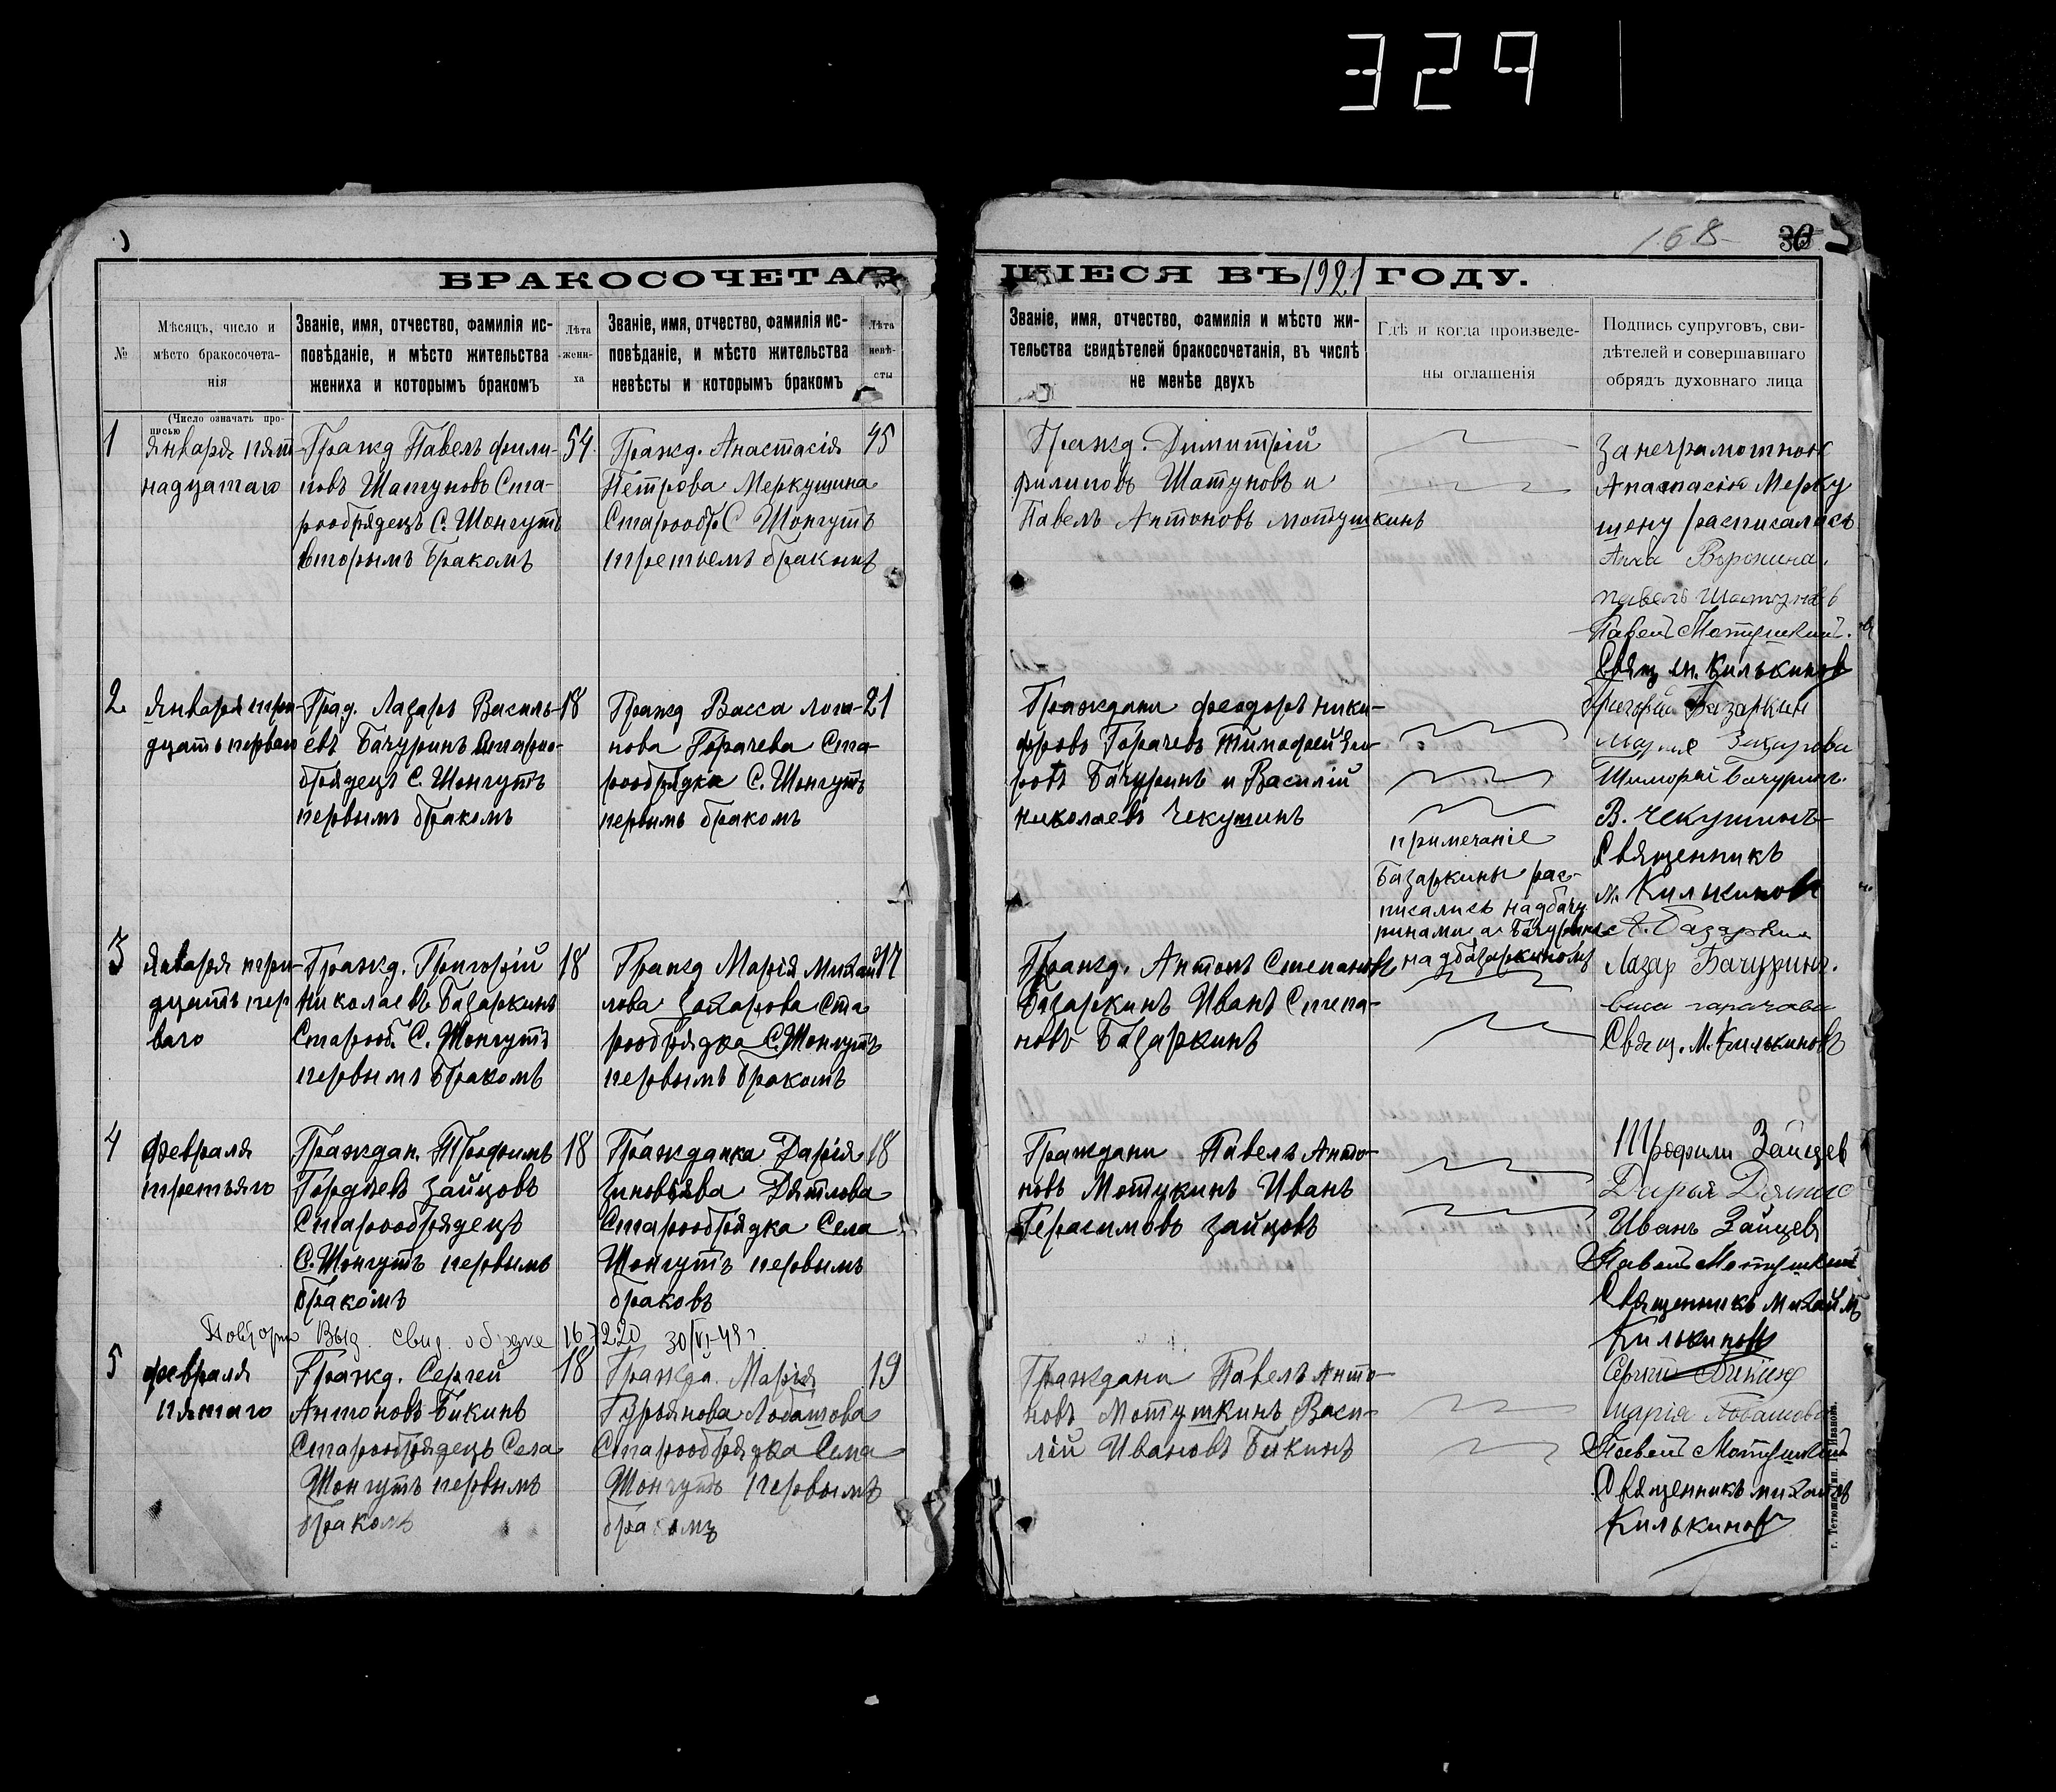 329
168
36
БРАКОСОЧЕТАВШІЕСЯ ВЪ 1921 ГОДУ.
№
Мѣсяцъ, число и
мѣсто бракосочета-
нія
Званіе, имя, отчество, фамилія ис-
повѣданіе, и мѣсто жительства
жениха и которымъ бракомъ
Лѣта
жени-
ха
Званіе, имя, отчество, фамилія ис-
повѣданіе, и мѣсто жительства
невѣсты и которымъ бракомъ
Лѣта
невѣ-
сты
Званіе, имя, отчество, фамилія и мѣсто жи-
тельства свидѣтелей бракосочетанія, въ числѣ
не менѣе двухъ
Гдѣ и когда произведе-
ны оглашенія
Подпись супруговъ, сви-
дѣтелей и совершавшаго
обрядъ духовнаго лица
(Число означать про-
писью
1
Января пят-
надцатаго
Гражд Павелъ фили-
повъ Шатуновъ Ста-
рообрядецъ С. Шонгутъ
вторымъ бракомъ
54
Гражд. Анастасія
Петрова Меркушина
Старообр. С Шонгутъ
третьемъ бракомъ
45
Гражд. Димитрій
филиповъ Шатуновъ и
Павелъ Антоновъ мотушкинъ
За неграмотною
Анастасію Мерку
шену расписалась
Анна Воронина.
павелъ Шатуновъ
Павелъ Мотушкинъ.
Свящ м. Килькинов
2
Января трид-
цать перваго
Град. Лазарь Василь-
евъ Бачуринъ Старо-
обрядецъ С. Шонгутъ
первымъ бракомъ
18
Гражд Васса лога-
нова Горачева Ста-
рообрядка С. Шонгутъ
первымъ бракомъ
21
Граждани феодоръ ники-
форовъ Горачевъ Тимофей
ровъ Бачуринъ и Василій
николаевъ Чекушинъ
примечаніе
Базаркины рас-
писались над бачу
ринами а Бачурины
над базаркиномъ
Григорий Базаркин
Мария Захарова
Тимофей Бачуринъ.
В. Чекушинъ
Священникъ
м. Килькинов
А. Базаркин
3
Января три-
дцать пер
ваго
Гражд. Григорій
Николаевъ Базаркинъ
Старооб. С. Шонгутъ
первымъ бракомъ
18
Гражд Марія Михай
лова Захарова Ста
рообрядка С. Шонгутъ
первымъ бракомъ
17
Гражд. Антонъ Степановъ
Базаркинъ Иванъ Степа-
новъ Базаркинъ
Лазар Бачуринъ.
васа гарачова
Свящ. М. Килькиновъ
4
февраля
третьяго
Граждан. Трофимъ
Гордѣевъ Зайцовъ
Старообрядецъ
С. Шонгутъ первымъ
бракомъ
18
Гражданка Дарія
Зиновьява Дятлова
Старообрядка Села
Шонгутъ первымъ
браковъ
18
Граждани Павелъ Анто-
новъ Мотукинъ Иванъ
Герасимовъ Зайцовъ
Трофим Зайцев
Дарья
Иванъ Зайцев
Павелъ Мотушкин
Священникъ Михаилъ
Килькинов
Повторно Выд. свид. о браке
30/VI-49г
5
февраля
пятаго
Гражд. Сергеи
Антоновъ Бикинъ
Старообрядецъ Села
Шонгутъ первымъ
бракомъ
18
Гражда. Марія
Гурьянова Лобашова
Старообрядка Села
Шонгутъ первымъ
бракомъ
19
Граждани Павелъ Анто-
новъ Мотушкинъ Васи-
лій Ивановъ Бикинъ
Сергей Бикин
Марія Лобашова
Павелъ Мотушкин
Священникъ михаилъ
Килькинов